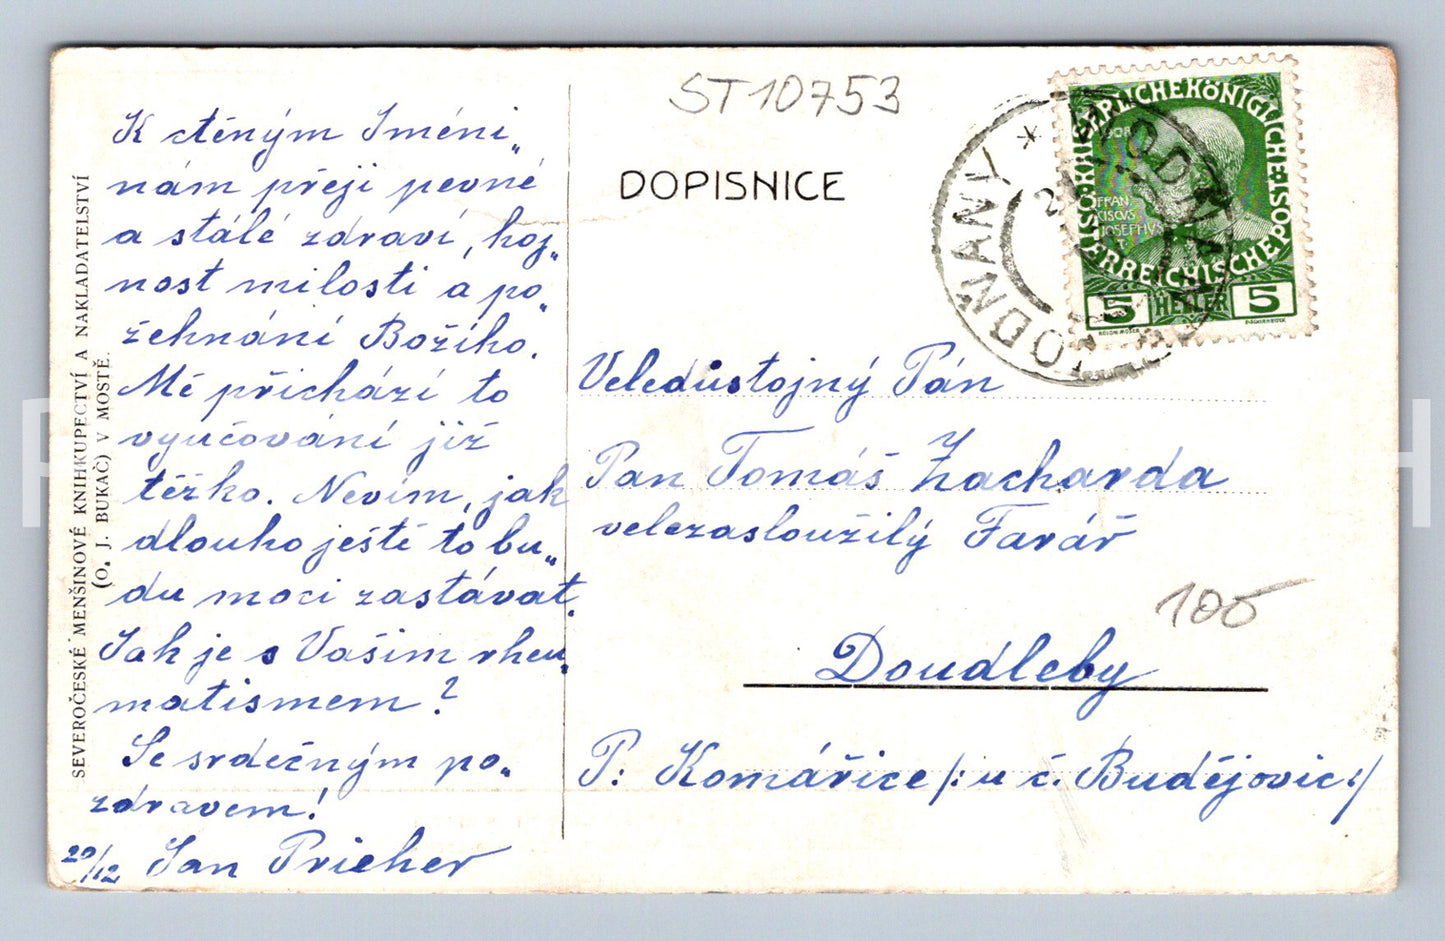 ST10753
DOPISNICE
K ctěným Jméni„
nám přeji pevné
a stálé zdraví, hoj„
nost milosti a po„
žehnání Božího.
Mě přichází to
vyučování již
těžko. Nevím, jak
dlouho ještě to bu„
du moci zastávat.
Jak je s Vašim rheu„
matismem?
Se srdečným po„
zdravem!
20/12 Jan Pricher
SEVEROČESKÉ MENŠINOVÉ KNIHKUPECTVÍ A NAKLADATELSTVÍ
(O. J. BUKAČ) V MOSTĚ.
VODŇANY * VODŇANY
KAISERLICHEKÖNIGLICHE
ÖSTERREICHISCHE POST
FRAN
CISCVS
JOSEPHVS
5 HELLER 5
Veledůstojný Pán
Pan Tomáš Zacharda
velezasloužilý Farář
100
Doudleby
P: Komářice /: u č. Budějovic :/